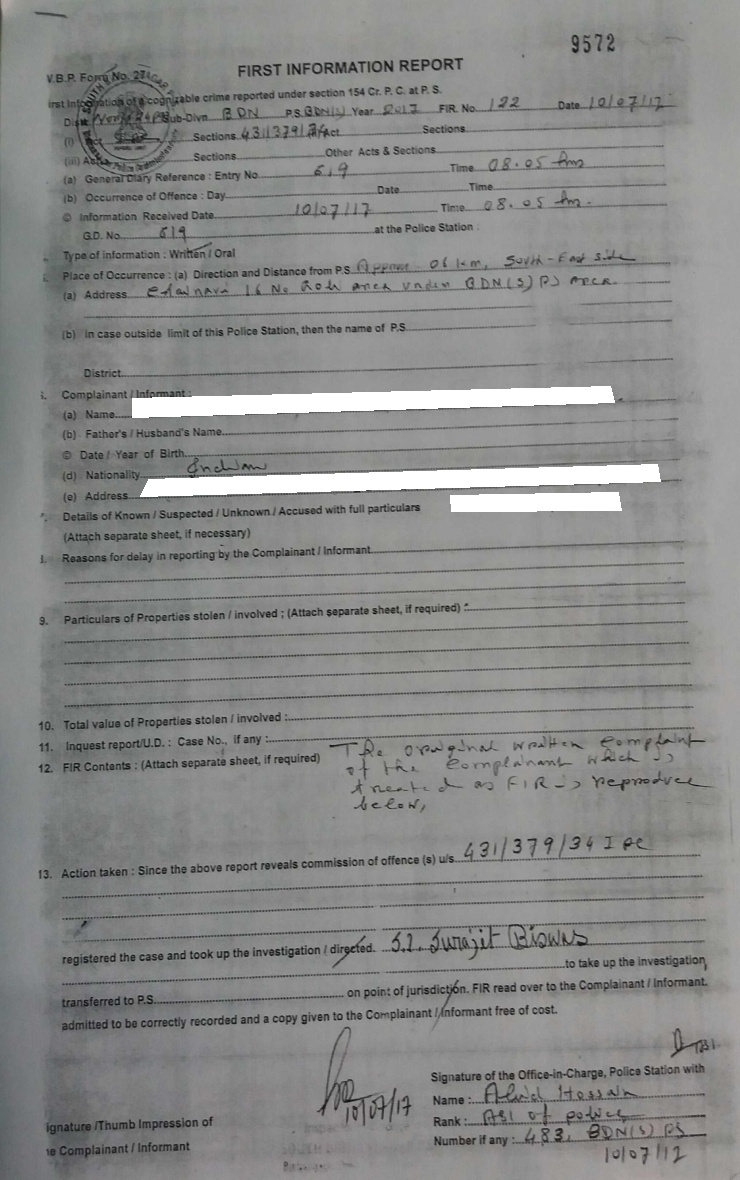 9572
FIRST INFORMATION REPORT
W.B.P. Form No. 27
First Information of a cognizable crime reported under section 154 Cr. P. C. at P. S.
Sub-Divn. BDN P.S. BDN(S) Year 2017 FIR. No 122 Date 10/07/17
(i) Sections 431/379/34 Act Sections
(iii) Sections Other Acts & Sections
(a) General Diary Reference : Entry No 619 Time 08.05 Am
(b) Occurrence of Offence : Day Date Time
© Information Received Date 10/07/17 Time 08.05 Am.
G.D. No. 619 at the Police Station :
Type of information : Written / Oral
Place of Occurrence : (a) Direction and Distance from P.S. Approx - 06 km, South-East side
(a) Address 16 No area under BDN(S) PS Area.
(b) in case outside limit of this Police Station, then the name of P.S.
District
Complainant / Informant :
(a) Name
(b) Father's / Husband's Name
© Date / Year of Birth
(d) Nationality Indian
(e) Address
Details of Known / Suspected / Unknown / Accused with full particulars
(Attach separate sheet, if necessary)
Reasons for delay in reporting by the Complainant / Informant
9. Particulars of Properties stolen / involved ; (Attach separate sheet, if required) :
10. Total value of Properties stolen / involved :
11. Inquest report/U.D. : Case No., if any :
12. FIR Contents : (Attach separate sheet, if required) The original written complaint
of the complainant which is
treated as FIR is reproduce
below,
13. Action taken : Since the above report reveals commission of offence (s) u/s. 431/379/34 IPC
registered the case and took up the investigation / directed. S.I. Surajit Biswas
to take up the investigation,
transferred to P.S. on point of jurisdiction. FIR read over to the Complainant / Informant.
admitted to be correctly recorded and a copy given to the Complainant / Informant free of cost.
ASI.
10/07/17
Signature of the Office-in-Charge, Police Station with
Name : Hossain
Rank : ASI of police
Number if any : 483, BDN(S) PS
10/07/17
ignature /Thumb Impression of
e Complainant / Informant